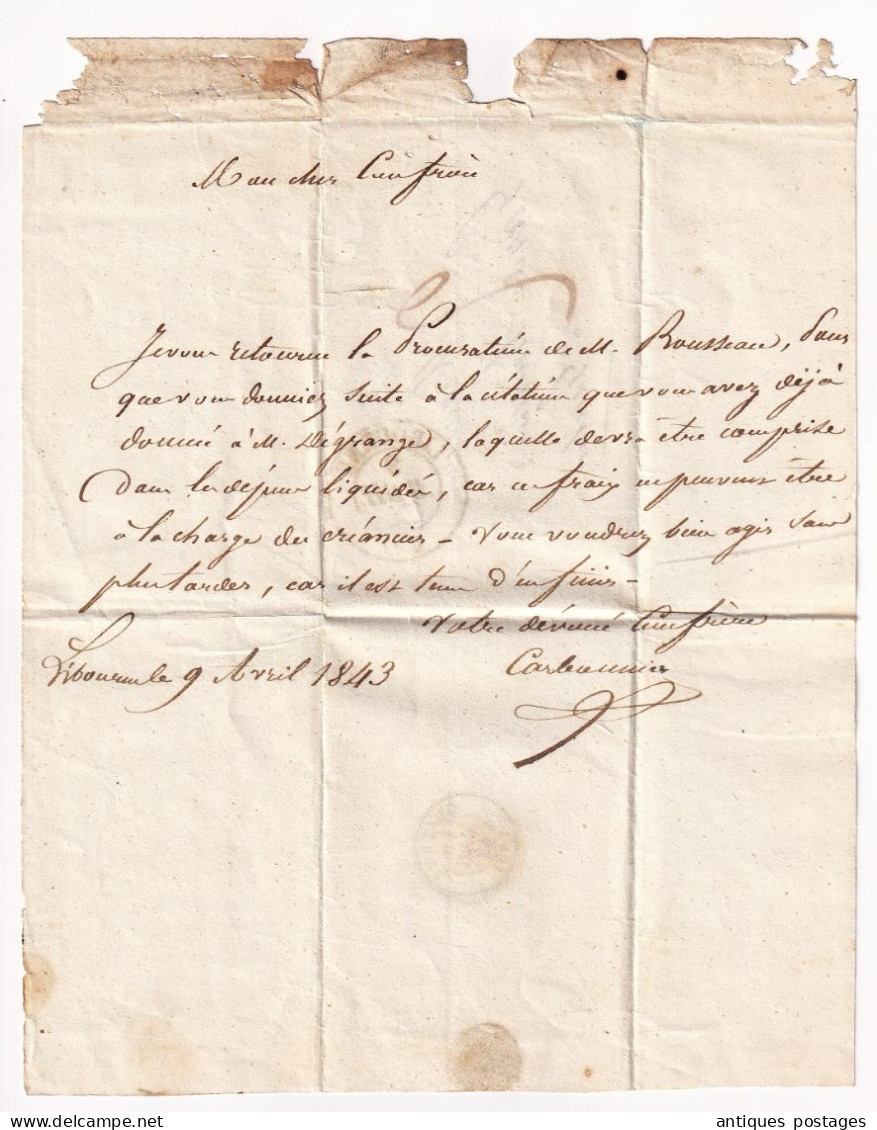 Mon cher Confrère
Je vous retourne la Procuration de M. Rousseau, Pour
que vous donniez suite à la citation que vous avez déjà
donné à M. Dégrange, laquelle devra être comprise
dans les dépens liquidés, car ces frais ne peuvent être
à la charge des créanciers - Vous voudrez bien agir sans
plus tarder, car il est tems d'en finir -
Votre dévoué Confrère
Libourne le 9 Avril 1843
Carbonnier
antiques postages